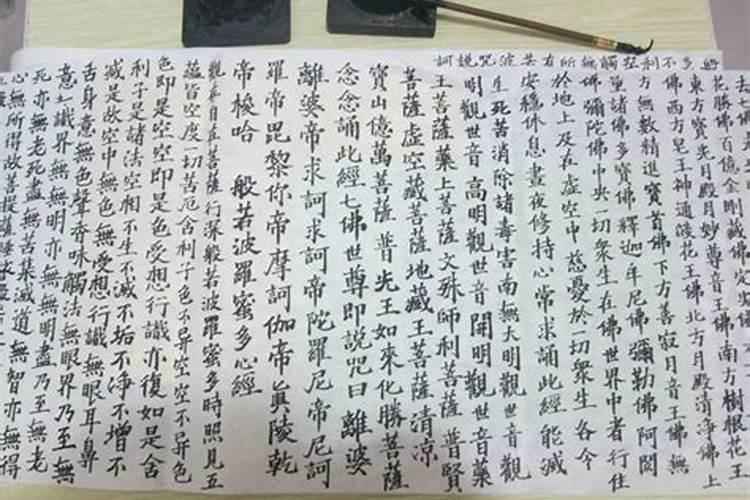 去七佛未
花勝佛百億金剛藏佛定光佛
東方寶光月殿月妙尊音王佛南方樹根花王
佛西方皂王神通焰花王佛北方月殿清淨佛上
方無數精進寶首佛下方善寂月音王佛無
量諸佛多寶佛釋迦牟尼佛彌勒佛阿閦
佛彌陀佛中央一切衆生在佛世界中者行住
於地上及在虛空中慈憂於一切衆生各令
安穩休息晝夜修持心常求誦此經能滅
生死苦消除諸毒害南無大明觀世音觀
明觀世音高明觀世音開明觀世音藥
王菩薩藥上菩薩文殊師利菩薩普賢
菩薩虛空藏菩薩地藏王菩薩清凉
寶山億萬菩薩普光王如來化勝菩薩
念念誦此經七佛世尊即說咒曰離婆
離婆帝求訶求訶帝陀羅尼帝尼訶
羅帝毘黎你帝摩訶伽帝真陵乾
帝梭哈
般若波羅蜜多心經
觀自在菩薩行深般若波羅蜜多時照見五
蘊皆空度一切苦厄舍利子色不异空空不异色
色即是空空即是色受想行識亦復如是舍
利子是諸法空相不生不滅不垢不淨不增不
減是故空中無色無受想行識無眼耳鼻
舌身意無色聲香味觸法無眼界乃至無
意識界無無明亦無無明盡乃至無老
死亦無老死盡無苦集滅道無智亦無得
所得故菩提薩埵